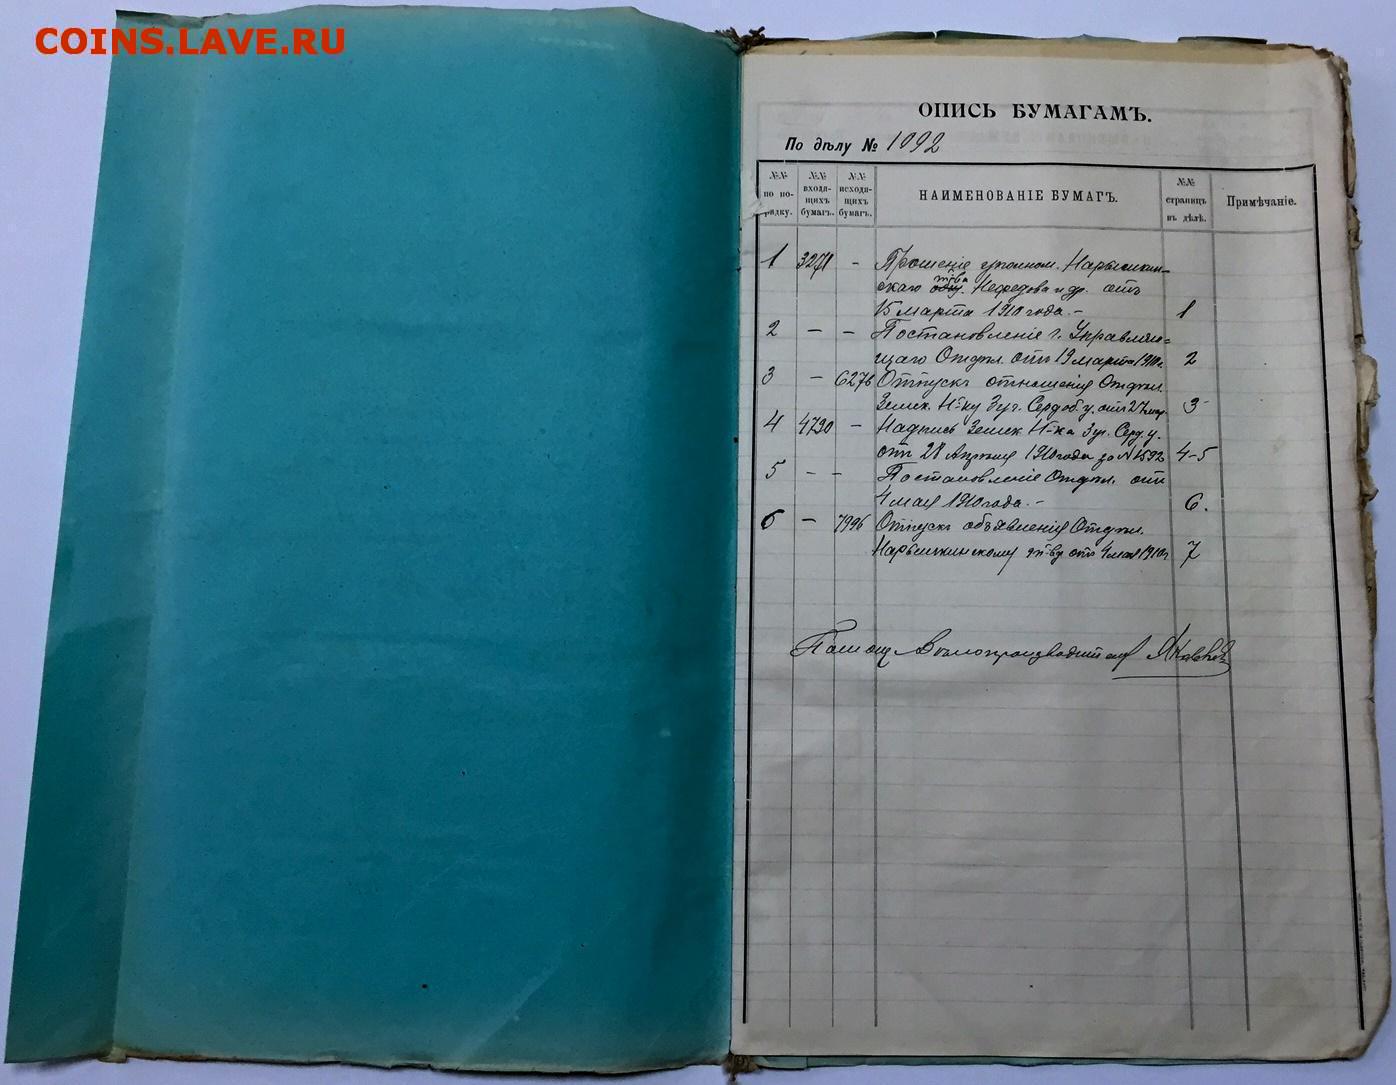 COINS.LAVE.RU
ОПИСЬ БУМАГАМЪ.
По дѣлу № 1092
№№ по по-рядку.
№№ входя-щихъ бумагъ.
№№ исходя-щихъ бумагъ.
НАИМЕНОВАНІЕ БУМАГЪ.
№№ страницъ въ дѣлѣ.
Примѣчаніе.
1 3271 - Прошеніе уполном. Нарышкин-
скаго т-ва Нефедова и др. отъ
15 марта 1910 года.- 1
2 — — Постановленіе г. Управляю=
щаго Отдѣл. отъ 19 марта 1910г. 2
3 — 6276 Отпускъ отношенія Отдѣл.
Земск. Н-ку 3 уч. Сердоб. у. отъ 27 мар. 3
4 4790 - Надпись Земск. Н-ка 3 уч. Серд. у.
отъ 28 Апрѣля 1910 года за № 1592 4-5
5 - - Постановленіе Отдѣл. отъ
4 мая 1910 года.- 6.
6 — 7996 Отпускъ объявленія Отдѣл.
Нарышкинскому т-ву отъ 4 мая 1910г. 7
Помощ. Дѣлопроизводителя